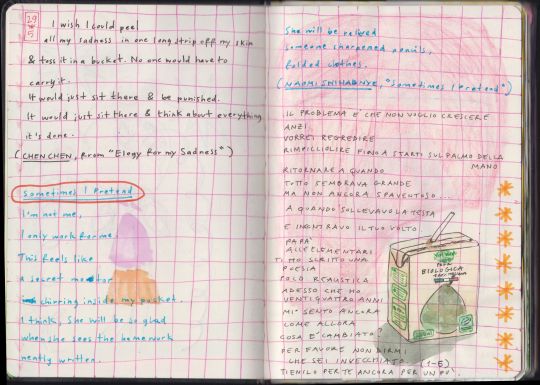 29
5
I wish I could peel
all my sadness in one long strip off my skin
& toss it in a bucket. No one would have to
carry it.
It would just sit there & be punished.
It would just sit there & think about everything
it's done.
(CHEN CHEN, from "Elegy for my Sadness")
Sometimes I Pretend
I'm not me,
I only work for me.
This feels like
a secret motor
chirring inside my pocket.
I think, She will be so glad
when she sees the homework
neatly written.
She will be relieved
someone sharpened pencils,
folded clothes.
(NAOMI SHIHAB NYE, "Sometimes I Pretend")
IL PROBLEMA È CHE NON VOGLIO CRESCERE
ANZI
VORREI REGREDIRE
RIMPICCIOLIRE FINO A STARTI SUL PALMO DELLA
MANO
RITORNARE A QUANDO
TUTTO SEMBRAVA GRANDE
MA NON ANCORA SPAVENTOSO...
A QUANDO SOLLEVAVO LA TESTA
E INCONTRAVO IL TUO VOLTO
PAPÀ
ALLE ELEMENTARI
TI HO SCRITTO UNA
POESIA
SOLO REALISTICA
ADESSO CHE HO
VENTIQUATTRO ANNI
MI SENTO ANCORA
COME ALLORA
COSA È CAMBIATO?
PER FAVORE NON DIRMI
CHE SEI INVECCHIATO
TIENILO PER TE ANCORA PER UN PO'.
(1-6)
PERA
BIOLOGICA